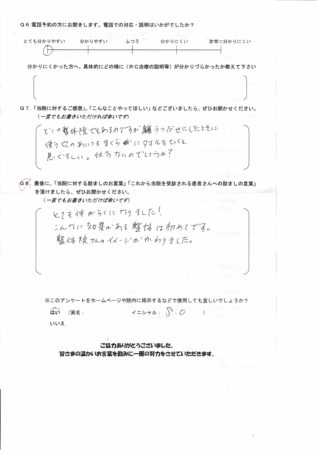 Q6.電話予約の方にお聞きします。電話での対応・説明はいかがでしたか?
とても分かりやすい 分かりやすい ふつう 分かりにくい 非常に分かりにくい
分かりにくかった方へ。具体的にどの様に(RC治療の説明等)が分かりづらかったか教えて下さい
Q7.「当院に対するご感想」、「こんなことやってほしい」などございましたら、ぜひお聞かせください。
(一言でもお書きいただければ幸いです)
どこの整体院でもあるのですが うつぶせにしたときに
使う穴のあいてるまくらにタオルをひくと
息ぐるしい。仕方ないのでしょうか?
Q8.最後に、「当院に対する励ましのお言葉」「これから当院を受診される患者さんへの励ましの言葉」
を頂けましたら、ぜひお聞かせください。
(一言でもお書きいただければ幸いです)
とても体がらくになりました!
こんなに効果がある整体は初めてです。
整体院さんのイメージがかわりました。
※このアンケートをホームページや院内に掲示するなどで使用しても宜しいでしょうか?
はい (実名: イニシャル: S.O )
いいえ
ご協力ありがとうございました。
皆さまの温かいお言葉を励みに一層の努力をさせていただきます。